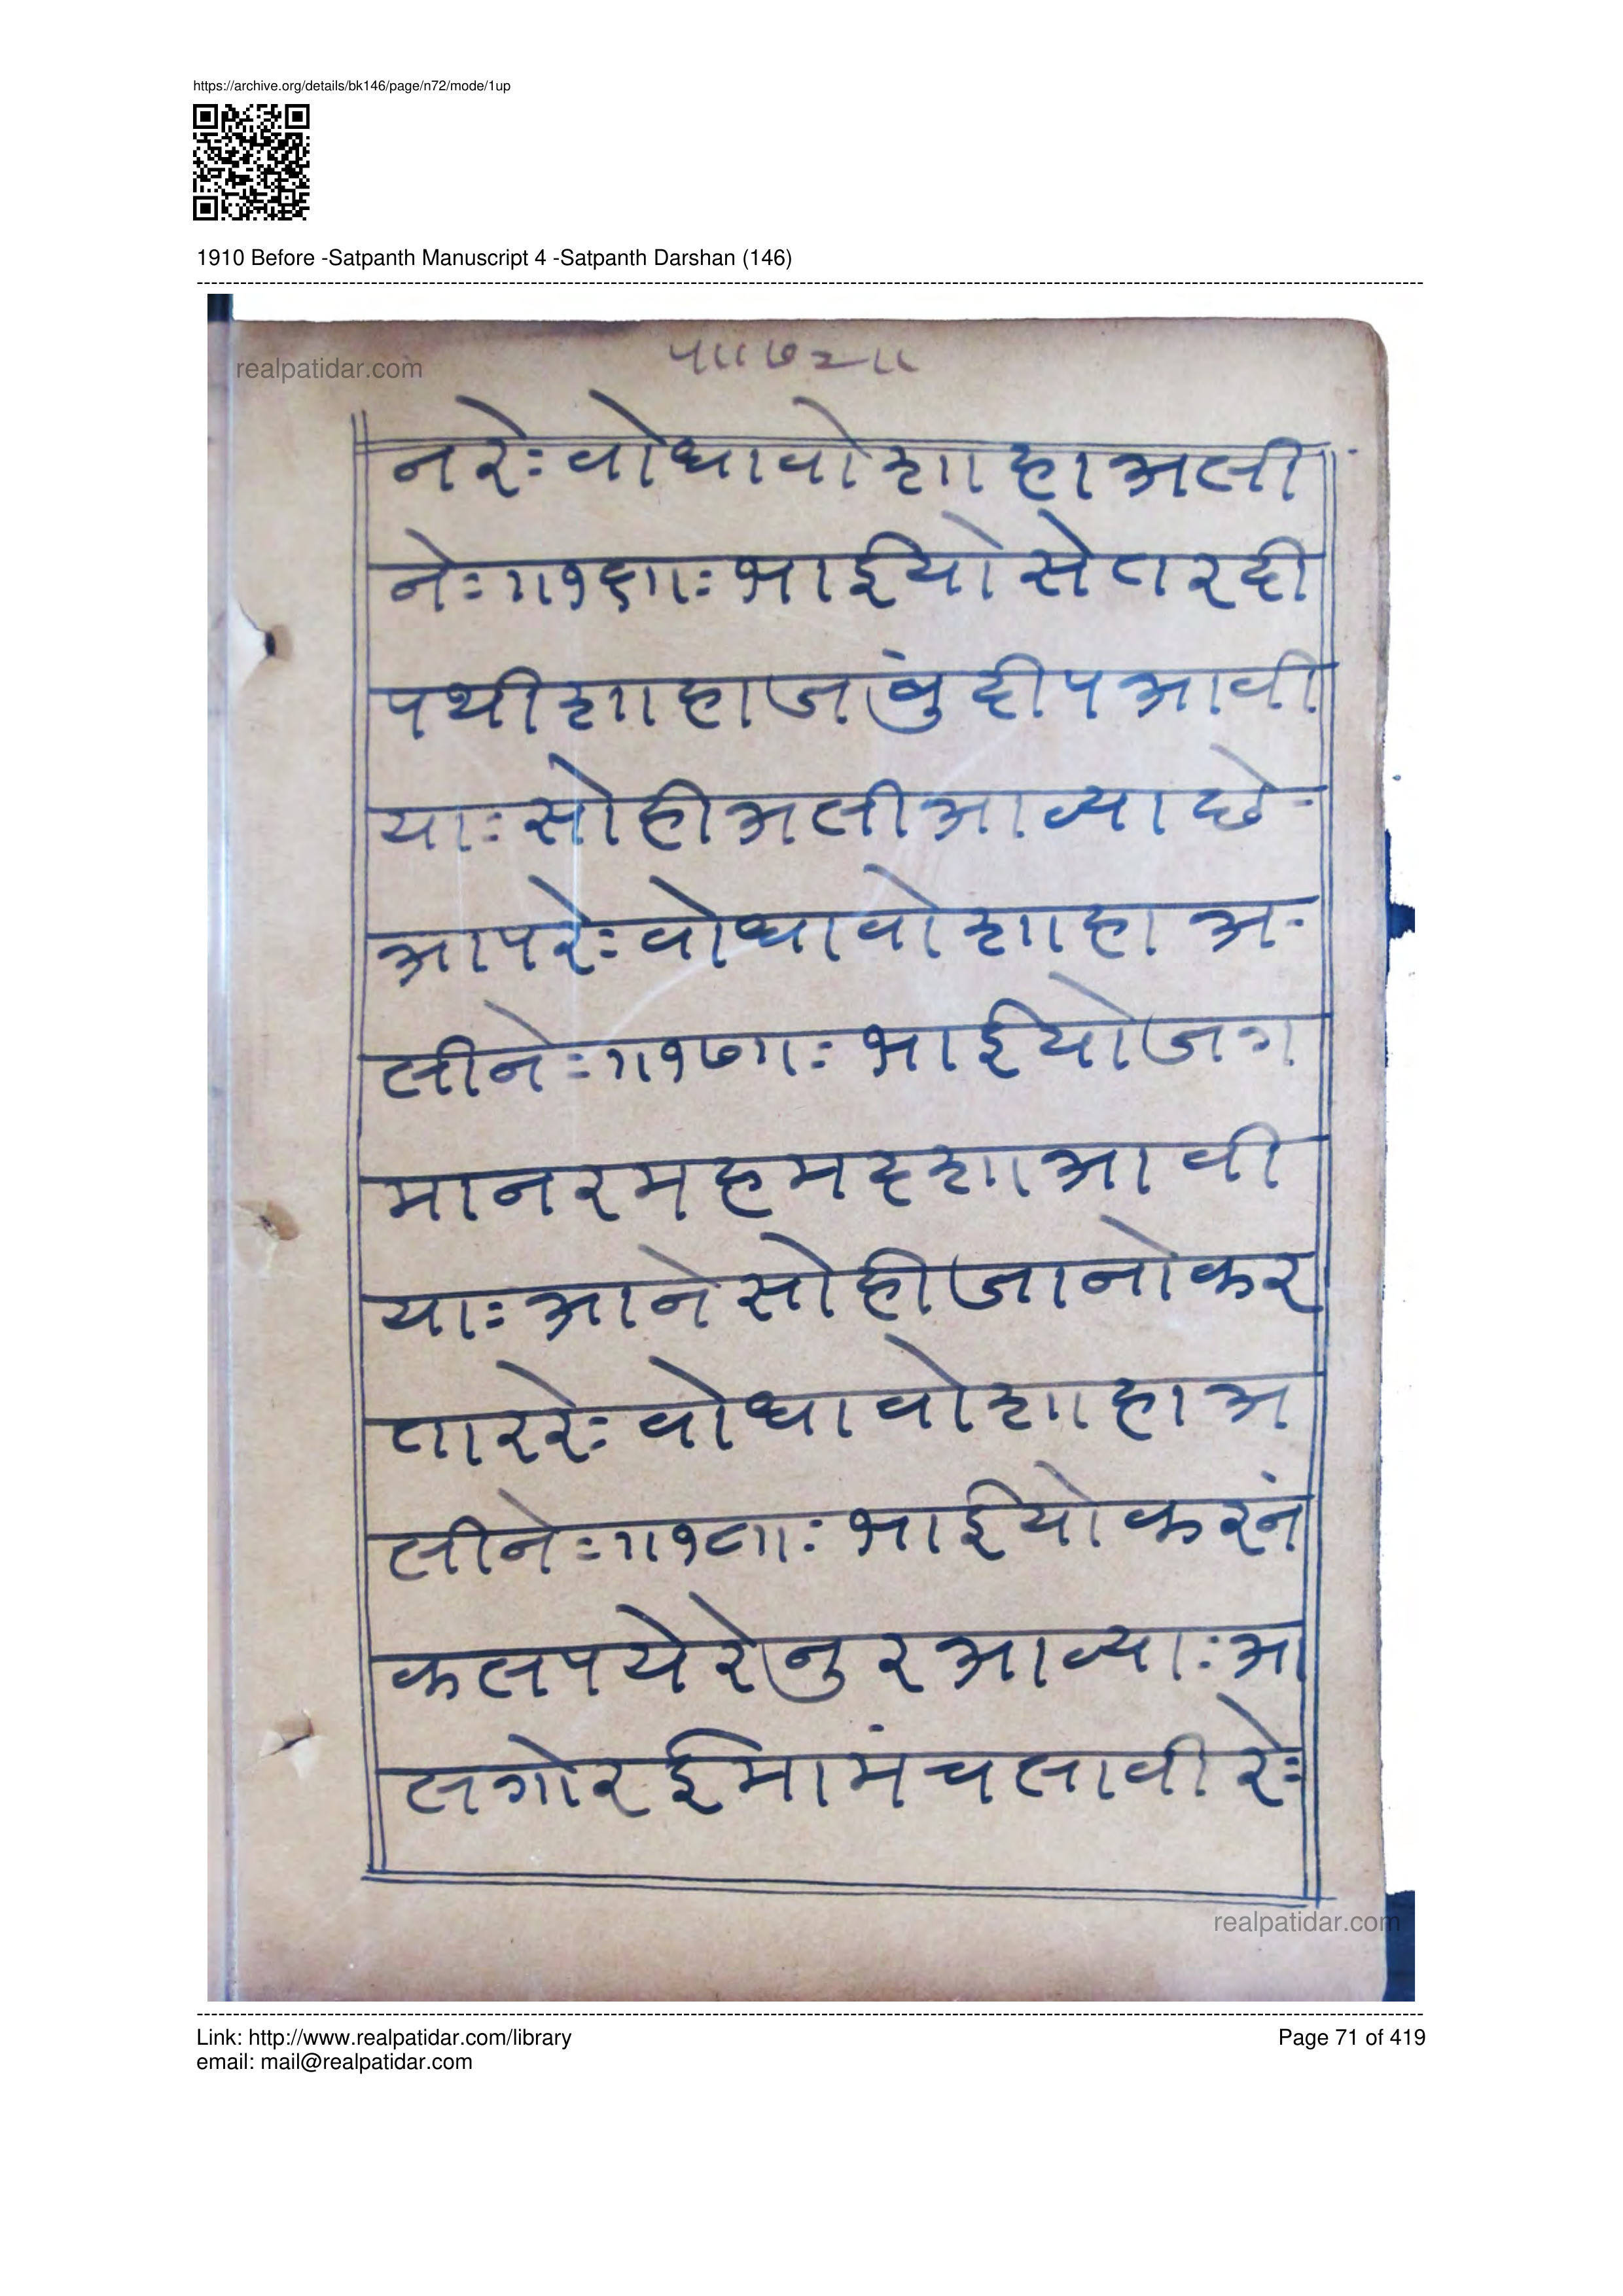 https://archive.org/details/bk146/page/n72/mode/1up
1910 Before -Satpanth Manuscript 4 -Satpanth Darshan (146)
realpatidar.com
प॥७२॥
नरेः वोधावो शाहा अली
नेः॥१६॥ः भाईयो सेतरदी
पथी शाहा जांबुदीप आवी
याः सोही अली आव्या छे-
आपरेः वोधावो शाहा अ-
लीनेः॥१७॥ः भाईयो जग
मा नर महमदशा आवी
याः आने सोही जानो कर
ताररेः वोधावो शाहा अ
लीनेः॥१८॥ः भाईयो करनं
कलपये रे नुर आव्याः आ
ल गोर ईमामं चलावी रेः
realpatidar.com
Link: http://www.realpatidar.com/library
Page 71 of 419
email: mail@realpatidar.com